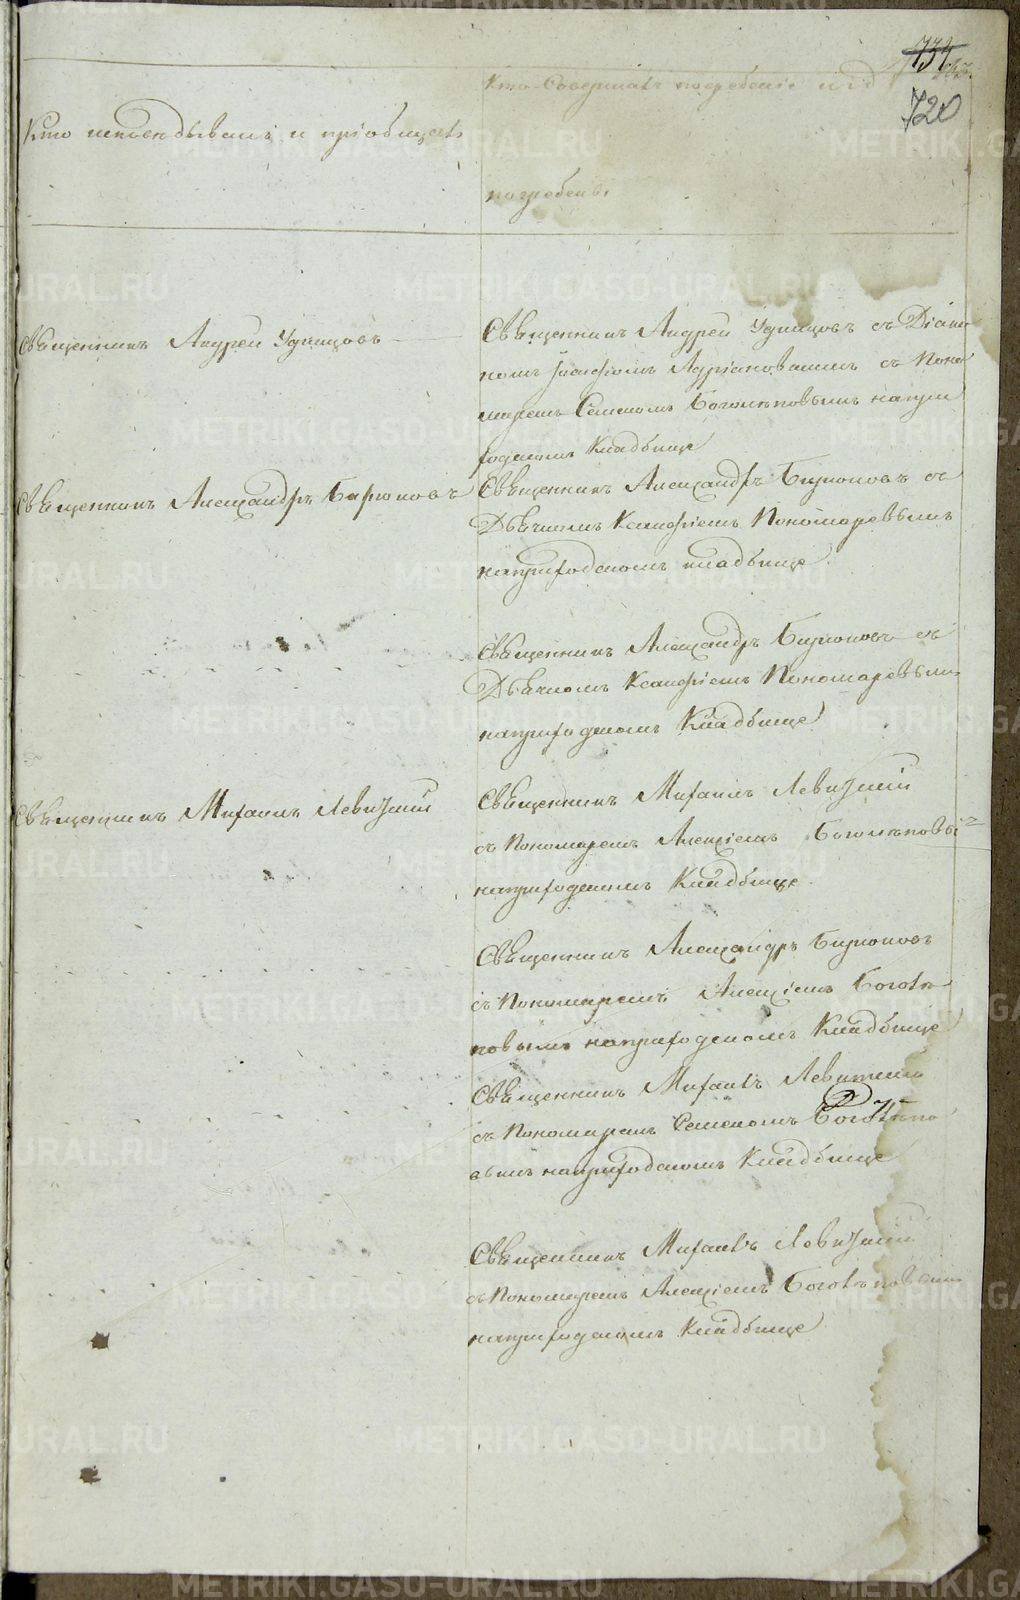 734
720
Кто исповѣдывалъ и пріобщалъ
Кто совершалъ погребеніе и гдѣ
погребены
Священникъ Андрей Удинцовъ
Священникъ Андрей Удинцовъ съ Діако
номъ Іоасафомъ Адріановскимъ съ Поно
маремъ Семеномъ Боголѣповымъ наприх
одскомъ Кладбище
Священникъ Александръ Бирюковъ
Священникъ Александръ Бирюковъ съ
Дьячкомъ Ксанфіемъ Пономаревымъ
наприходскомъ кладбище
Священникъ Александръ Бирюковъ съ
Дьячкомъ Ксанфіемъ Пономаревымъ
наприходскомъ Кладбище
Священникъ Михаилъ Левитскій
Священникъ Михаилъ Левитскій
съ Пономаремъ Алексіемъ Боголѣповы
наприходскомъ Кладбище
Священникъ Александръ Бирюковъ
съ Пономаремъ Алексіемъ Боголѣ
повымъ наприходскомъ Кладбище
Священникъ Михаилъ Левитскій
съ Пономаремъ Семеномъ Боголѣпо
вымъ наприходскомъ Кладбище
Священникъ Михаилъ Левитскій
съ Пономаремъ Алексіемъ Боголѣповымъ
наприходскомъ Кладбище
METRIKI.GASO-URAL.RU